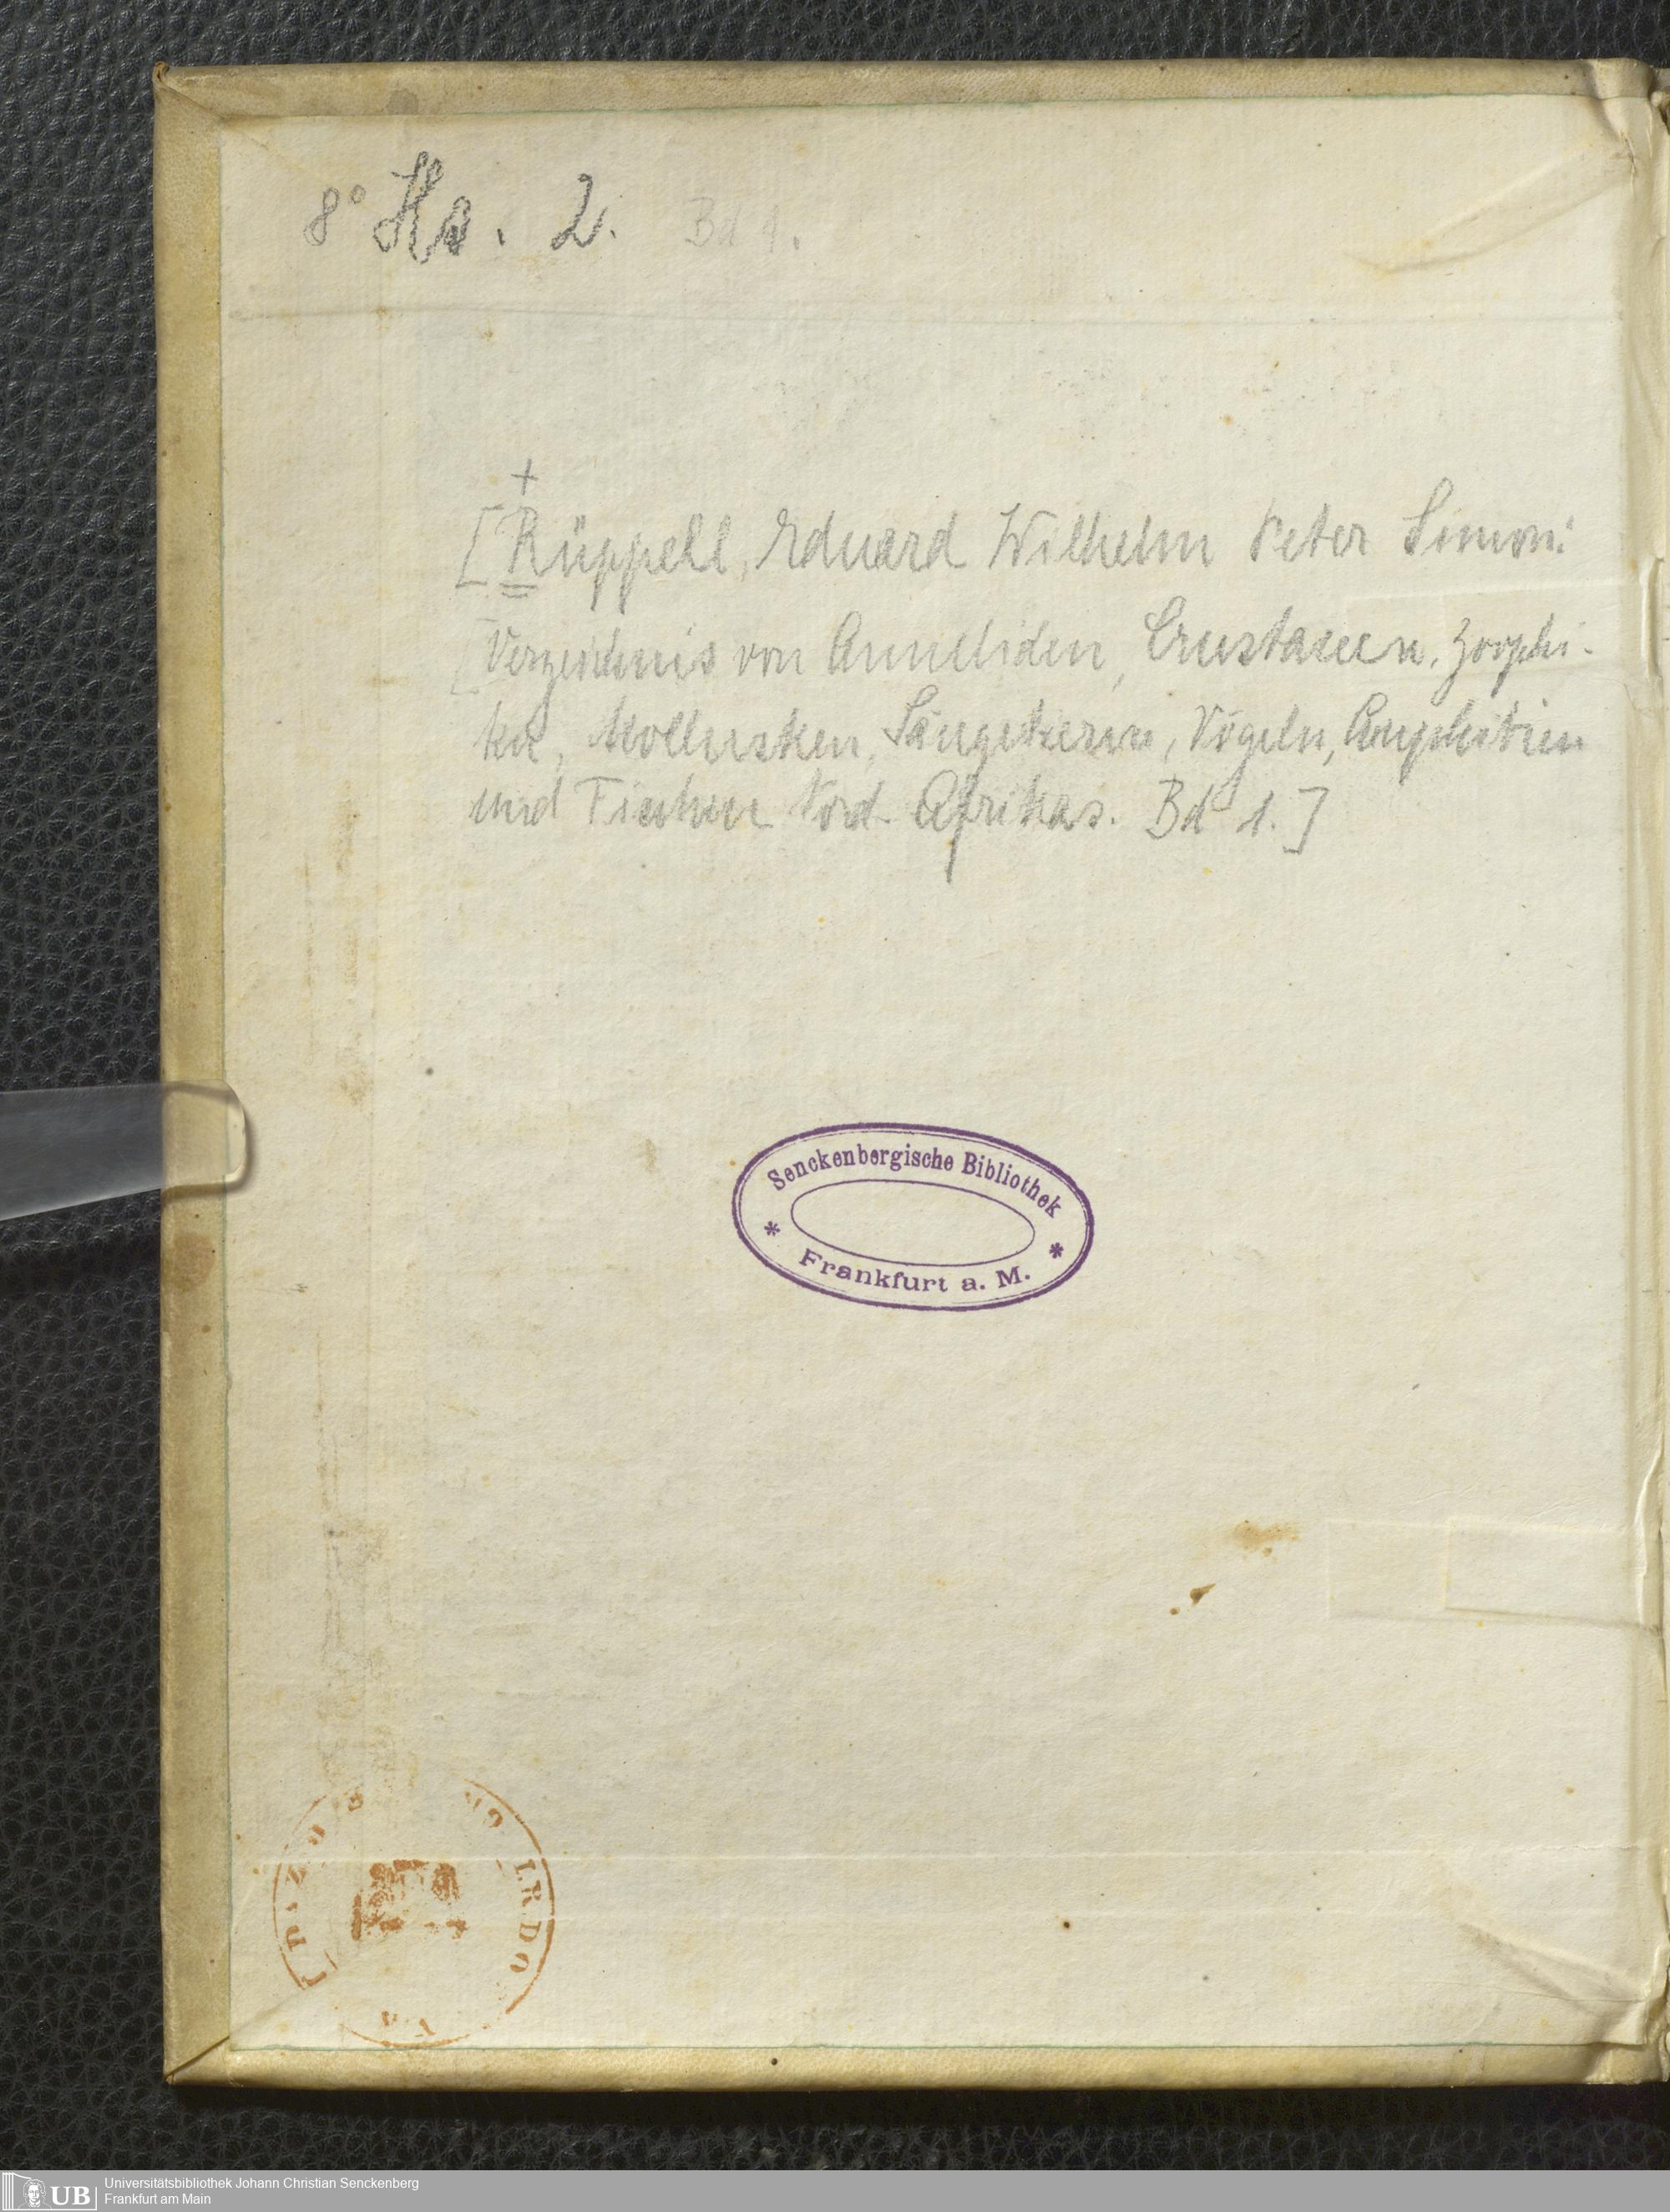 8° Hs. 2. Bd 1.
[Rüppell, Eduard Wilhelm Peter Simon:
[Verzeichnis von Anneliden, Crustaceen, Zoophi-
ten, Mollusken, Säugetieren, Vögeln, Amphibien
und Fischen Nord-Afrikas. Bd 1.]
Senckenbergische Bibliothek
* *
Frankfurt a. M.
UB
Universitätsbibliothek Johann Christian Senckenberg
Frankfurt am Main